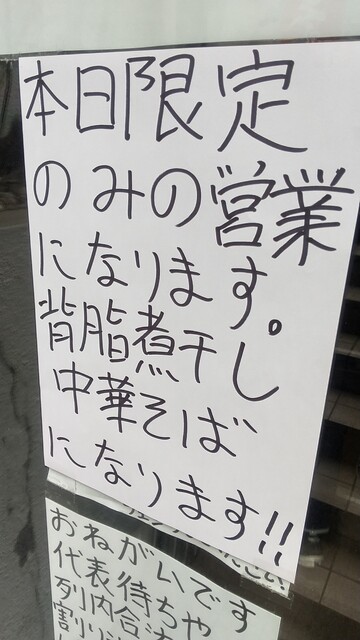 本日限定
のみの営業
になります。
背脂煮干し
中華そば
になります!!
おねがいです
代表待ちや
列内合流
割り